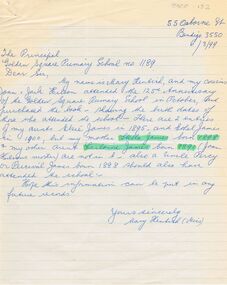 PAGE 132
55 Osborne St.
Bendigo 3550
/ 99
The Principal
Golden Square Primary School no. 1189.
Dear Sir,
My name is Mary and my cousin
Joan & Jack attended the 125th Anniversary
of the Golden Square Primary School in October, and
purchased the book - showing the birth dates of
those who attended the school - There are 2 entries
of my aunts Elsie James in 1895, and Ethel James
in 1901, but my mother James born
& my other aunt James born (Joan
mother) are not in it; also a uncle Percy
or Percival James born 1888 should also have
attended the school -
Hope this information can be put in any
future records.
Yours sincerely
Mary (Mrs)